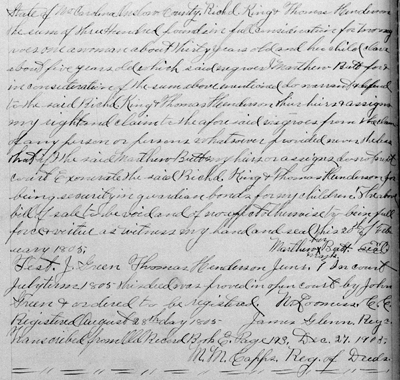 State of No Carolina Onslow County, Richd King & Thomas Henderson
the sum of three Hundred pounds in full consideration for two neg
roes one a woman about thirty years old and her child slave
about five years old which said negroes I Matthew Butt for
in consideration of the sum above mentioned do warrant & defend
to the said Richd King & Thomas Henderson their heirs & assigns
my right and claim to the afore said negroes from the claim
of any person or persons whatsoever provided never the less
that if the said Matthew Butt my heirs or assigns do
& exonerate the said Richd King & Thomas Henderson for
being security in guardian bonds for my children the above
bill of sale to be void and of no effect otherwise to be in full
force & virtue as witness my hand and seal this 20th of
uary 1805;
Matthew Butt seal
Test. J. Green Thomas Henderson Junr. In court
July term 1805 this deed was proved in open court by John
Green & ordered to be registered. C.C.
Registered August 28th day 1805 James Glenn Reg.
Transcribed from Old Record Book E. Page 123, Dec. 27, 1905;
M. M. Capps, Reg. of Deeds